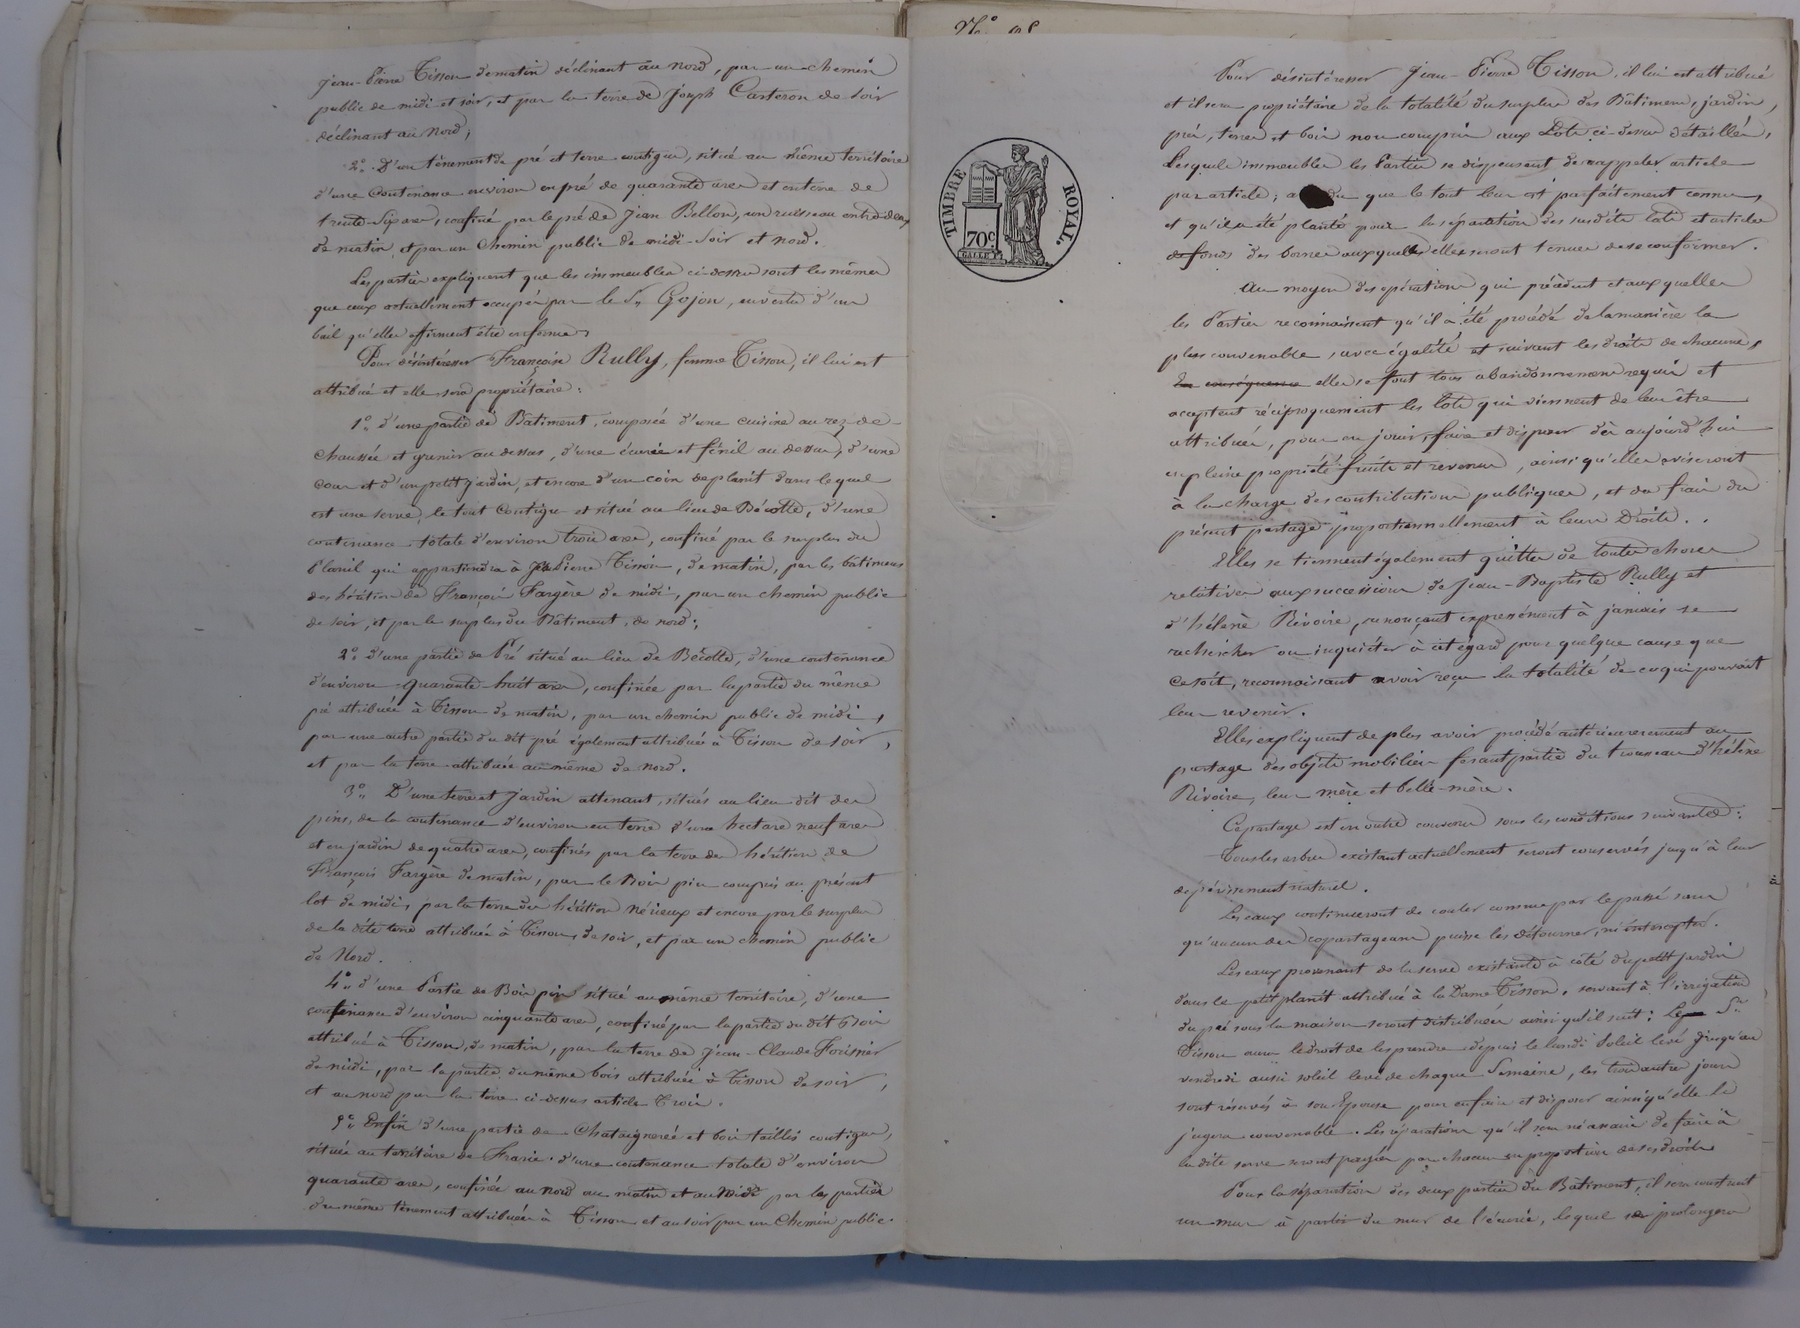 Jean-Pierre Tisson de matin déclinant au nord, par un chemin
public de midi et soir, et par la terre de Joseph Carteron de soir
déclinant au nord;
2° D'un tènement de pré et terre contigus, situé au même territoire
d'une contenance environ en pré de quarante ares et en terre de
trente-six ares, confiné par le pré de Jean Bellon, un ruisseau entre deux
de matin et par un chemin public de midi-soir et nord.
Les parties expliquent que les immeubles ci-dessus sont les mêmes
que ceux actuellement occupés par le Sr Gojon, en vertu d'un
bail qu'elles affirment être en forme
Pour désintéresser Françoise Rully, femme Tisson, il lui est
attribué et elle sera propriétaire:
1° d'une partie de Bâtiment, composée d'une cuisine au rez-de-
chaussée et grenier au dessus, d'une écurie et fénil au dessus, d'une
cour et d'un petit jardin, et encore d'un coin de planit dans lequel
est une serve, le tout contigu et situé au lieu de Bécolle, d'une
contenance totale d'environ trois ares, confiné par le surplus du
qui appartiendra à Jn Pierre Tisson, de matin, par les bâtimens
des héritiers de François Fargère de midi, par un chemin public
de soir, et par le surplus du Bâtiment, de nord;
2° d'une partie de Pré situé au lieu de Bécolle, d'une contenance
d'environ quarante-huit ares, confinée par la partie du même
pré attribuée à Tisson de matin, par un chemin public de midi,
par une autre partie du dit pré également attribuée à Tisson de soir,
et par la terre attribuée au même de nord.
3° D'une terre et jardin attenant, situés au lieu dit des
pins, de la contenance d'environ en terre d'un hectare neuf ares
et en jardin de quatre ares, confinés par la terre des héritiers de
François Fargère de matin, par le Bois pin compris au présent
lot de midi, par la terre des héritiers Nérieux et encore par le surplus
de la dite terre attribuée à Tisson, de soir, et par un chemin public
de Nord.
4° d'une Partie de Bois pin situé au même territoire, d'une
contenance d'environ cinquante ares, confiné par la partie du dit Bois
attribué à Tisson, de matin, par la terre de Jean-Claude Forissier
de midi, par la partie du même bois attribuée à Tisson de soir,
et au nord par la terre ci-dessus article Trois.
5° Enfin d'une partie de Chataigneraie et bois taillis contigus,
située au territoire de Frarie, d'une contenance totale d'environ
quarante ares, confinée au nord au matin et au Midi par les parties
du même tènement attribuées à Tisson et au soir par un Chemin public.
N° 98
TIMBRE ROYAL.
70c
Pour désintéresser Jean-Pierre Tisson, il lui est attribué
et il sera propriétaire de la totalité du surplus des Bâtimens, jardin,
pré, terres et bois non compris aux Lots ci-dessus détaillés,
Lesquels immeubles les Parties se dispensent de rappeler article
par article; que le tout leur est parfaitement connu,
et qu'il a été planté pour la séparation des susdits lots et articles
de fonds des bornes auxquelles elles seront tenues de se conformer.
Au moyen des opérations qui précèdent et auxquelles
les Parties reconnaissent qu'il a été procédé de la manière la
plus convenable, avec égalité et suivant les droits de chacune,
En conséquence elles se font tous abandonnemens requis et
acceptent réciproquement les lots qui viennent de leur être
attribués, pour en jouir, faire et disposer dès aujourd'hui
en pleine propriété fruits et revenus, ainsi qu'elles aviseront
à la charge des contributions publiques, et des frais du
présent partage proportionnellement à leurs Droits.
Elles se tiennent également quittes de toutes choses
relatives aux successions de Jean-Baptiste Rully et
d'hélène Rivoire, renonçant expressément à jamais se
rechercher ou inquiéter à cet égard pour quelque cause que
ce soit, reconnaissant avoir reçu la totalité de ce qui pouvait
leur revenir.
Elles expliquent de plus avoir procédé antérieurement au
partage des objets mobiliers faisant partie du trousseau d'hélène
Rivoire, leur mère et belle-mère.
Ce partage est en outre convenu sous les conditions suivantes:
Tous les arbres existant actuellement seront conservés jusqu'à leur
dépérissement naturel.
Les eaux continueront de couler comme par le passé sans
qu'aucun des copartageans puisse les détourner, ni intercepter.
Les eaux provenant de la serve existante à côté du petit jardin
dans le petit planit attribué à la Dame Tisson, servant à l'irrigation
du pré sous la maison seront distribuées ainsi qu'il suit: Le Sr
Tisson aura le droit de les prendre depuis le lundi Soleil levé jusqu'au
vendredi aussi soleil levé de chaque Semaine, les trois autres jours
sont réservés à son Epouse pour en faire et disposer ainsi qu'elle le
jugera convenable. Les réparations qu'il sera nécessaire de faire à
la dite serve seront payées par chacun en proportion de ses droits
Pour la séparation des deux parties du Bâtiment, il sera construit
un mur à partir du mur de l'écurie, lequel se prolongera